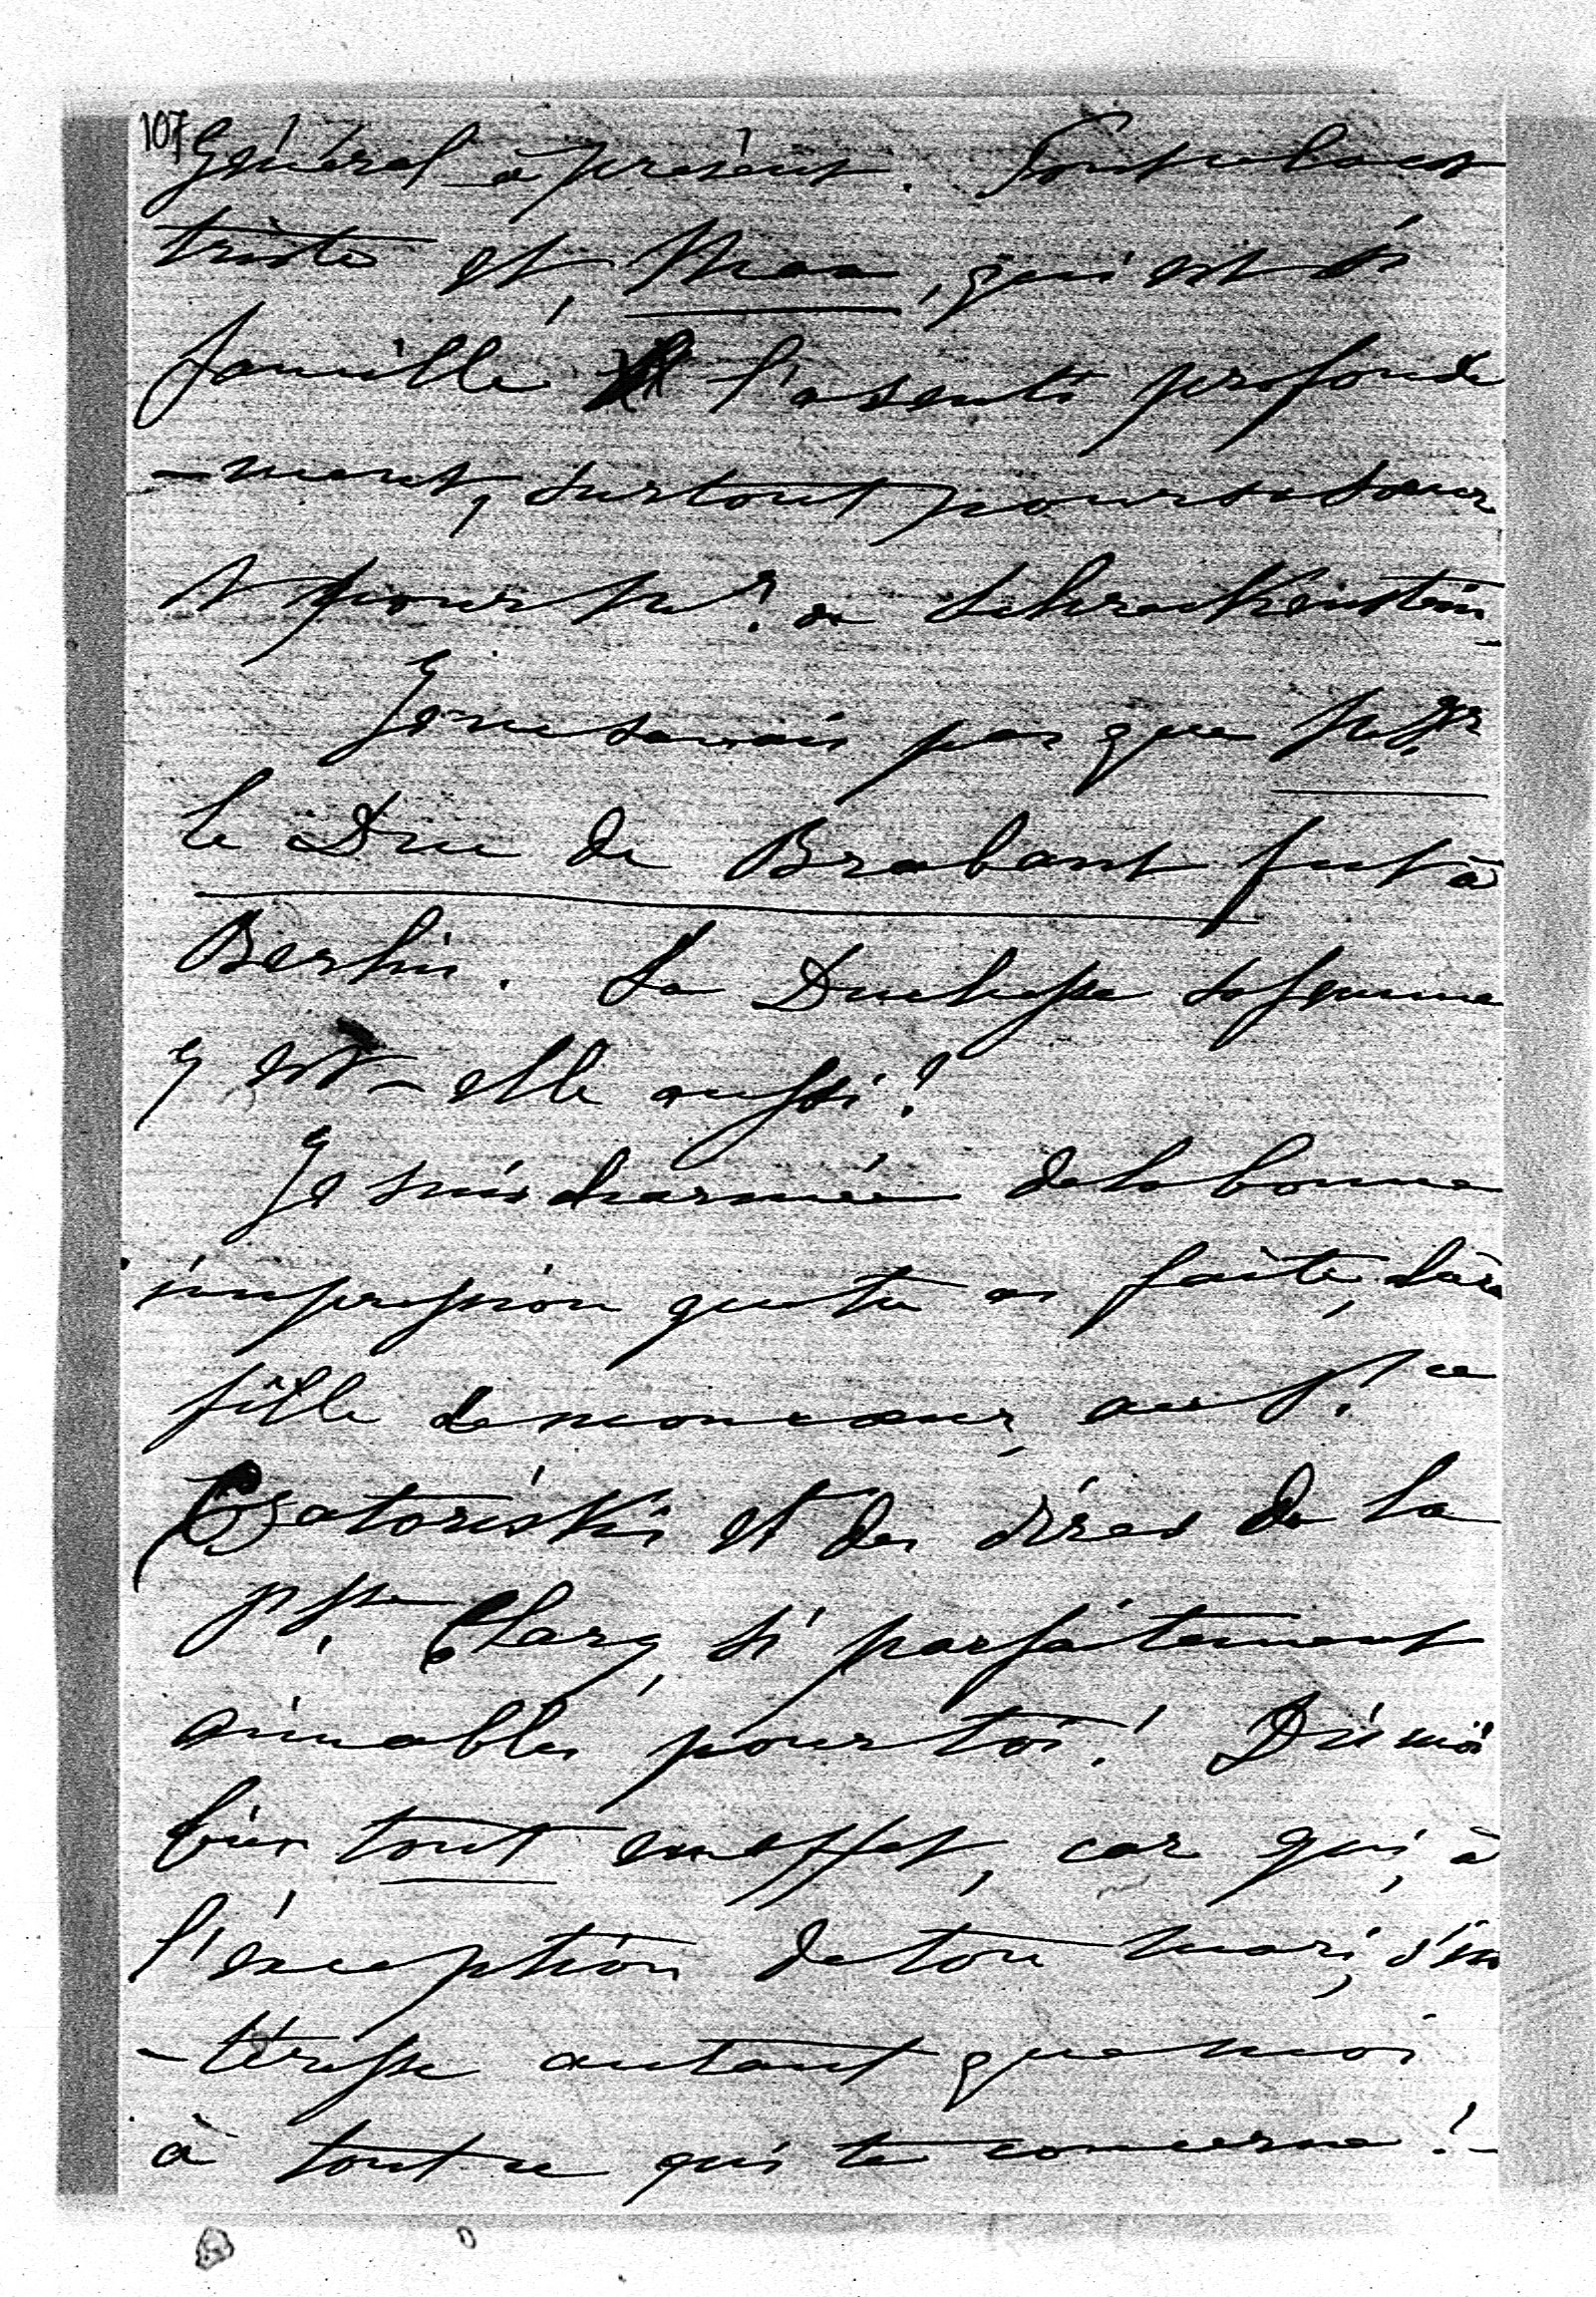 107
Général à présent. Tout cela est
triste et, Max, qui est si
famille, l'a senti profondé
-ment, surtout pour sa soeur
et pour Mr. de Schreckenstein_
Je ne savais pas que Mgr
le Duc de Brabant fut à
Berlin. La Duchesse sa femme
y est-elle aussi?
Je suis charmée de la bonne
impression que tu as faite, chère
fille de mon coeur, au P.ce
Czatoriski et des dires de la
P.sse Clary, si parfaitement
aimables pour toi! Dis moi
bien tout en effet, car qui, à
l'exception de ton mari, s'in
-téresse autant que moi
à tout ce qui te concerne!-